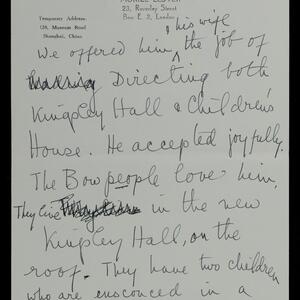 MURIEL LESTER
23, Ravenley Street
Bow E. 3, London
Temporary Address:
128, Museum Road
Shanghai, China
& his wife
We offered him ^ the job of
Directing both
Kingsley Hall & Children's
House. He accepted joyfully.
The Bow people love him.
They live in the new
Kingsley Hall, on the
roof. They have two children
who are ensconced in a